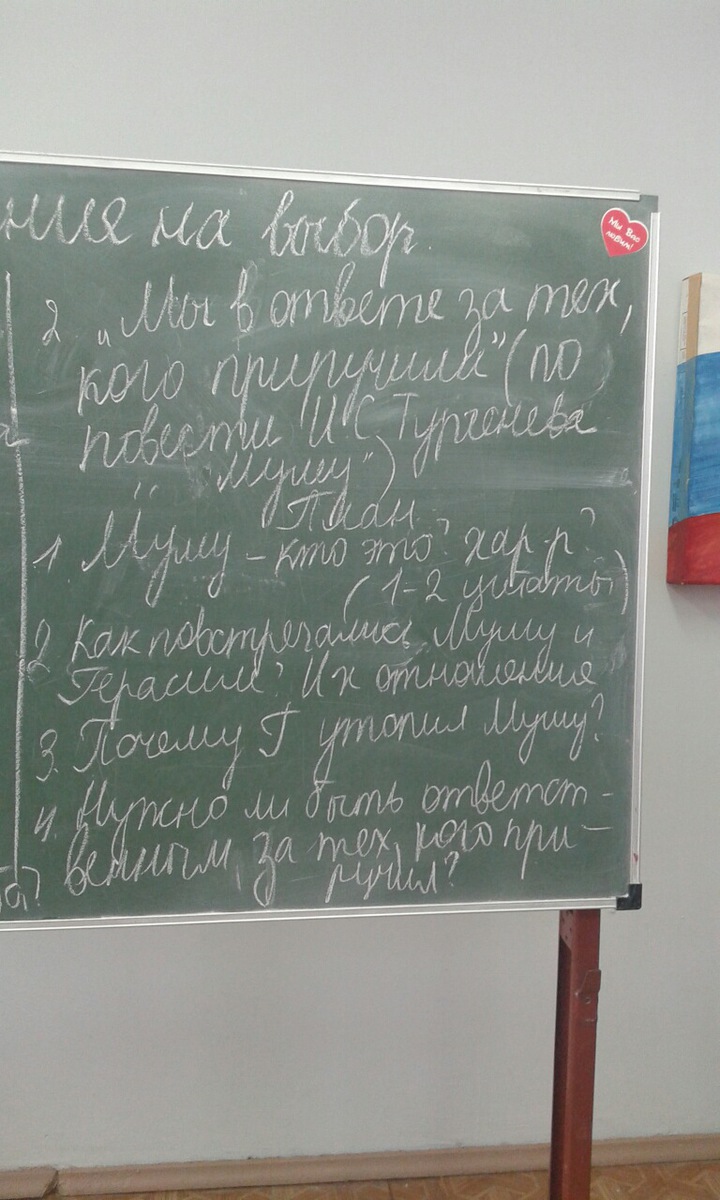 ния на выбор.
Мы Вас
любим!
2 „Мы в ответе за тех,
кого приручили" (по
повести И.С Тургенева
„Муму")
План.
1. Муму – кто это? хар-р?
(1-2 цитаты)
2 Как повстречались Муму и
Герасим? Их отношения
3. Почему Г утопил Муму?
4. Нужно ли быть ответст-
венным за тех, кого при-
ручил?